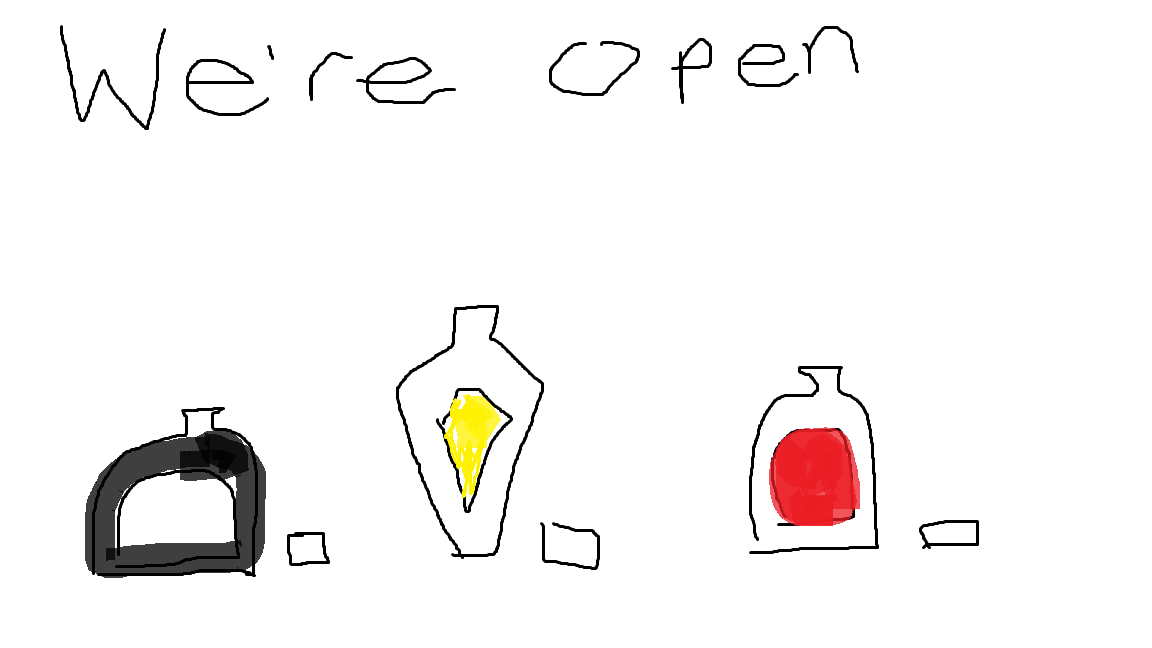 We're open